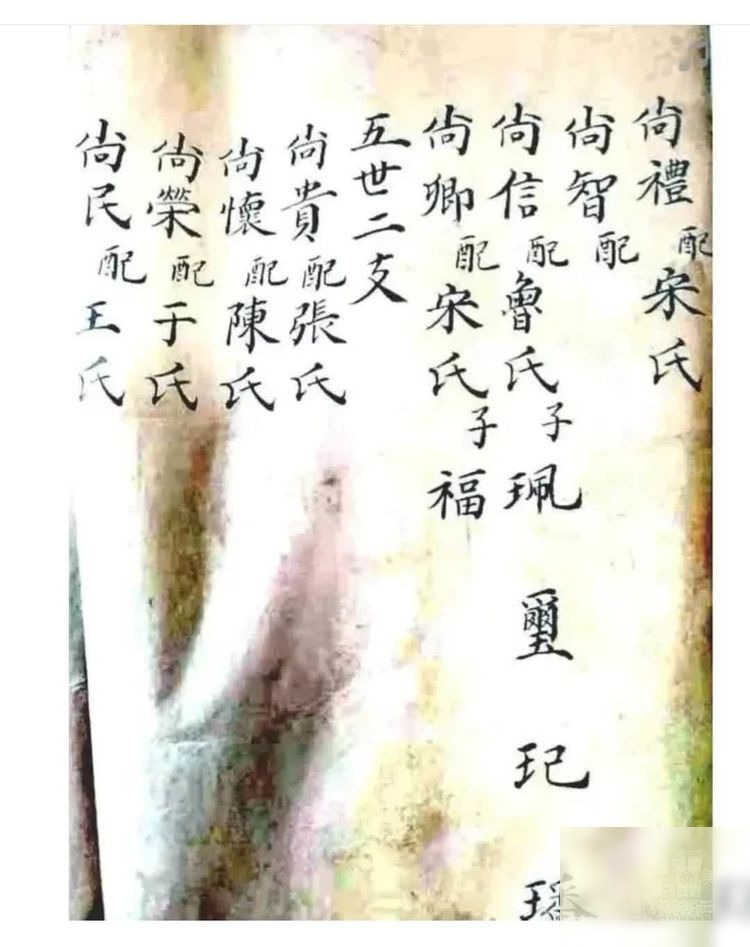 尚禮配宋氏
尚智配
尚信配魯氏子珮 璽 玘 璠
尚卿配宋氏子福
五世二支
尚貴配張氏
尚懷配陳氏
尚榮配于氏
尚民配王氏